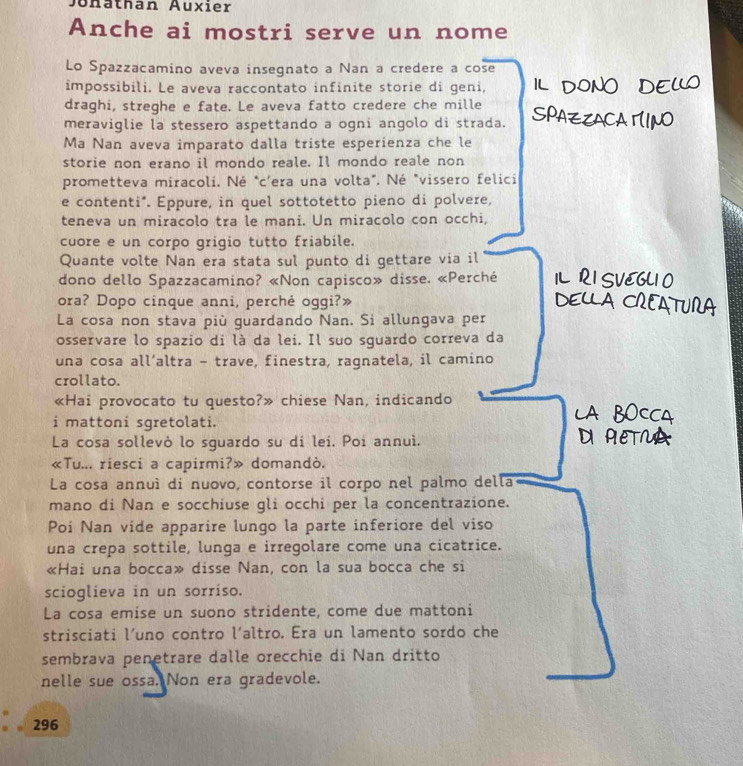 Jonathan Auxier
Anche ai mostri serve un nome
Lo Spazzacamino aveva insegnato a Nan a credere a cose
impossibili. Le aveva raccontato infinite storie di geni,
draghi, streghe e fate. Le aveva fatto credere che mille
meraviglie la stessero aspettando a ogni angolo di strada.
Ma Nan aveva imparato dalla triste esperienza che le
storie non erano il mondo reale. Il mondo reale non
prometteva miracoli. Né "c'era una volta". Né "vissero felici
e contenti". Eppure, in quel sottotetto pieno di polvere,
teneva un miracolo tra le mani. Un miracolo con occhi,
cuore e un corpo grigio tutto friabile.
IL DONO DELLO
SPAZZACAMINO
Quante volte Nan era stata sul punto di gettare via il
dono dello Spazzacamino? «Non capisco» disse. «Perché
ora? Dopo cinque anni, perché oggi?»
La cosa non stava più guardando Nan. Si allungava per
osservare lo spazio di là da lei. Il suo sguardo correva da
una cosa all'altra – trave, finestra, ragnatela, il camino
crollato.
IL RISVEGLIO
DELLA CREATURA
«Hai provocato tu questo?» chiese Nan, indicando
i mattoni sgretolati.
La cosa sollevò lo sguardo su di lei. Poi annuì.
«Tu... riesci a capirmi?» domandò.
La cosa annuì di nuovo, contorse il corpo nel palmo della
mano di Nan e socchiuse gli occhi per la concentrazione.
Poi Nan vide apparire lungo la parte inferiore del viso
una crepa sottile, lunga e irregolare come una cicatrice.
«Hai una bocca» disse Nan, con la sua bocca che si
scioglieva in un sorriso.
La cosa emise un suono stridente, come due mattoni
strisciati l'uno contro l'altro. Era un lamento sordo che
sembrava penetrare dalle orecchie di Nan dritto
nelle sue ossa. Non era gradevole.
LA BOCCA
DI PIETRA
296